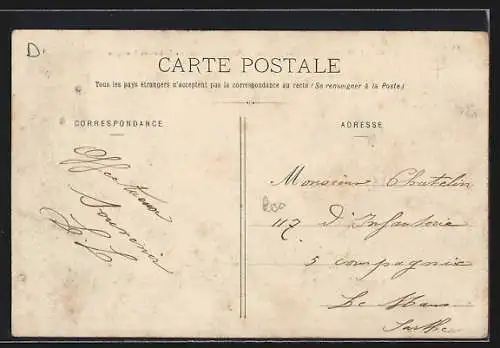 D.
CARTE POSTALE
Tous les pays étrangers n'acceptent pas la correspondance au recto (Se renseigner à la Poste)
CORRESPONDANCE
ADRESSE
Affectueux
Souvenir
Monsieur Chatelin
200
117 d'Infanterie
5 compagnie
Le Mans
Sarthe